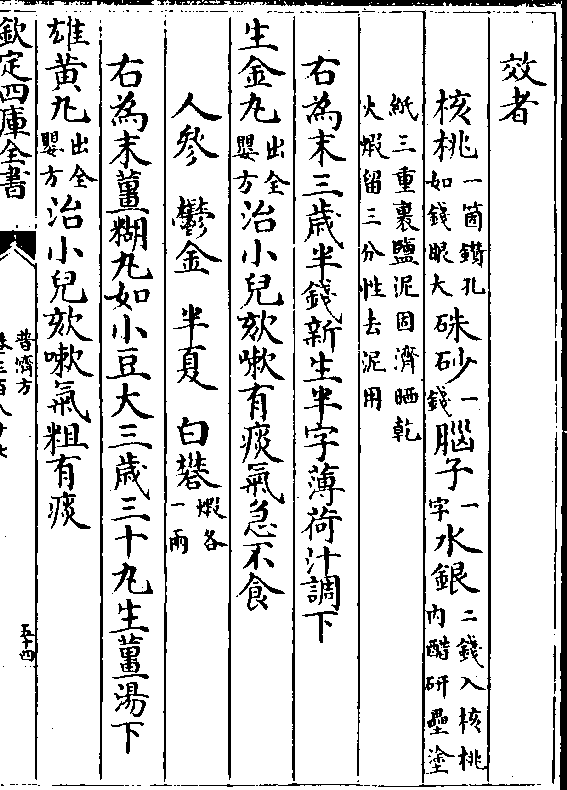 效者
核桃一箇鑽孔如錢眼大硃砂一錢腦子一字水銀二錢入核桃内醋研壘塗
紙三重裹鹽泥固濟晒乾火煆留三分性去泥用
右為末三歳半錢新生半字薄荷汁調下
生金丸出全嬰方治小兒欬嗽有痰氣急不食
人參 鬱金 半夏 白礬煆各一兩
右為末薑糊丸如小豆大三歳三十丸生薑湯下
雄黄丸出全嬰方治小兒欬嗽氣粗有痰
欽定四庫全書
普濟方
卷三百八十七
五十四